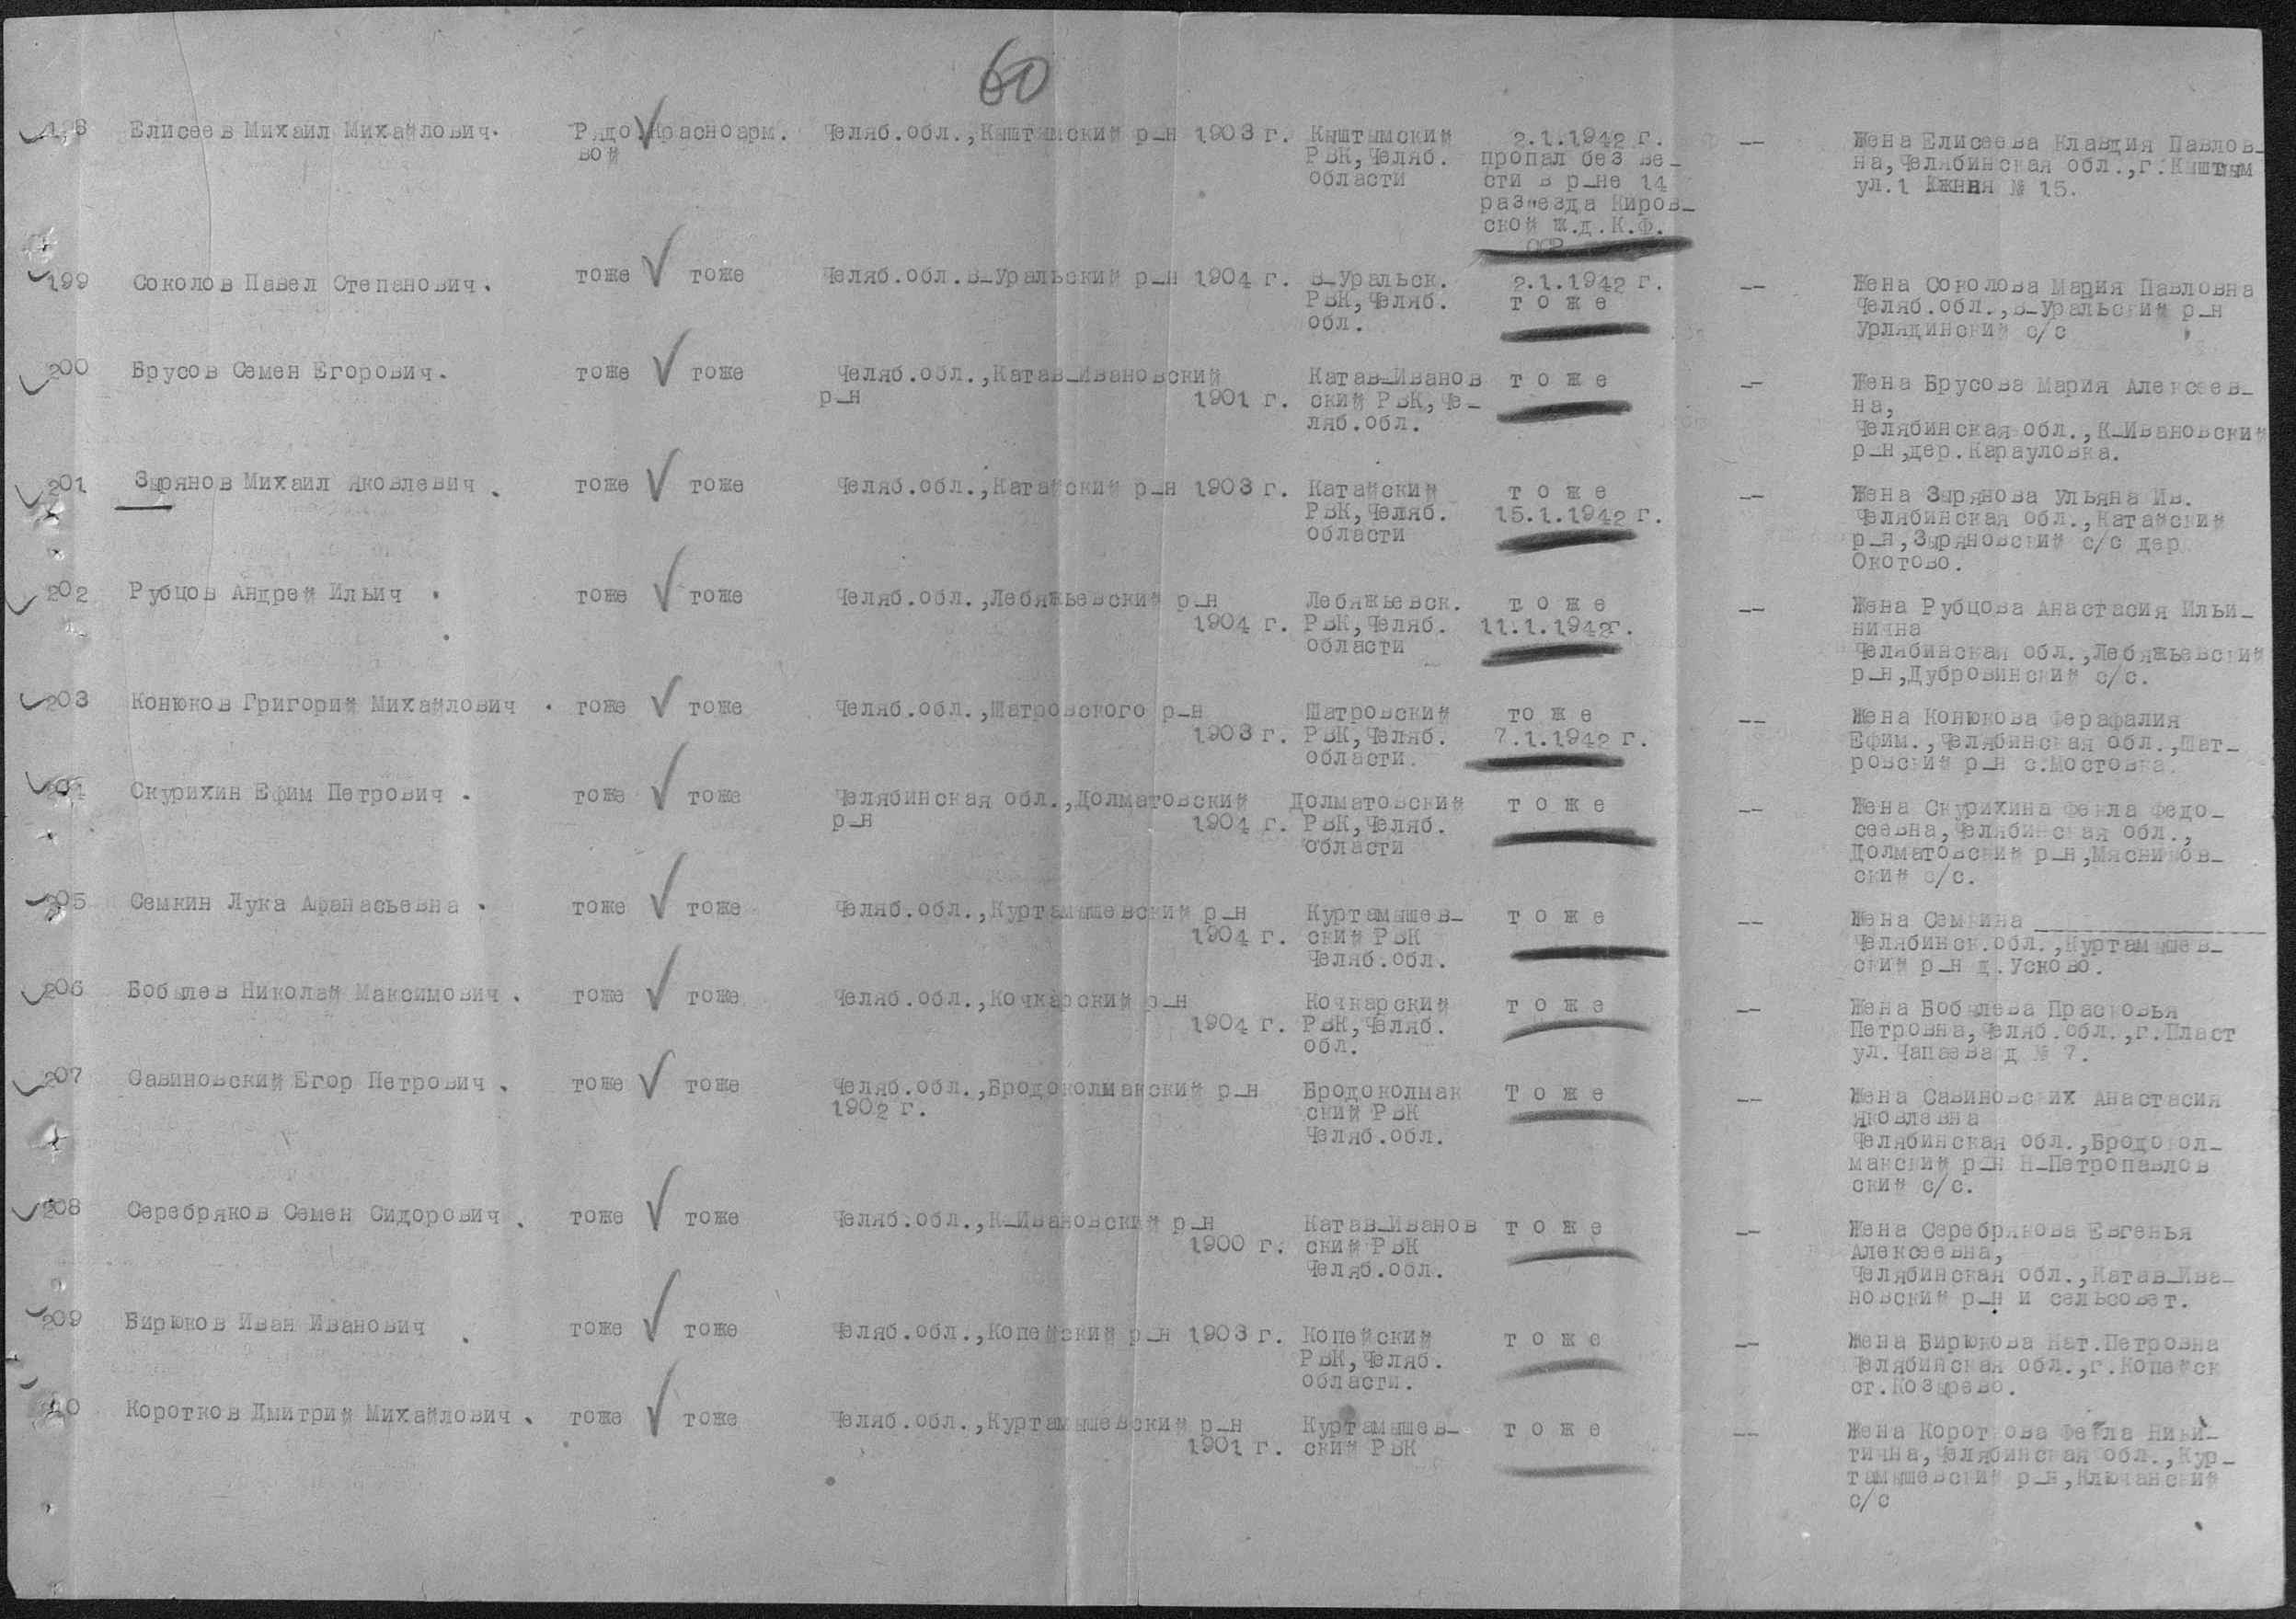 60
198 Елисеев Михаил Михайлович. Рядо Красноарм. Челяб.обл.,Кыштымский р-н 1903 г. Кыштымский 2.1.1942 г. -- Жена Елисеева Клавдия Павлов-
вой РВК,Челяб. пропал без ве- на,Челябинская обл.,г.Кыштым
области сти в р-не 14 ул.1 Южная № 15.
разъезда Киров-
ской ж.д.К.Ф.
ССР
199 Соколов Павел Степанович. тоже тоже Челяб.обл.В-Уральский р-н 1904 г. В-Уральск. 2.1.1942 г. -- Жена Соколова Мария Павловна
РВК,Челяб. тоже Челяб.обл.,В-Уральский р-н
обл. Урлядинский с/с
200 Брусов Семен Егорович. тоже тоже Челяб.обл.,Катав-Ивановский Катав-Иванов тоже -- Жена Брусова Мария Алексеев-
р-н 1901 г. ский РВК,Че- на,
ляб.обл. Челябинская обл.,К-Ивановский
р-н,дер.Карауловка.
201 Зырянов Михаил Яковлевич. тоже тоже Челяб.обл.,Катайский р-н 1903 г. Катайский тоже -- Жена Зырянова Ульяна Ив.
РВК,Челяб. 15.1.1942 г. Челябинская обл.,Катайский
области р-н,Зыряновский с/с дер
Окотово.
202 Рубцов Андрей Ильич . тоже тоже Челяб.обл.,Лебяжьевский р-н Лебяжьевск. тоже -- Жена Рубцова Анастасия Ильи-
1904 г. РВК,Челяб. 11.1.1942г. нична
области Челябинская обл.,Лебяжьевский
р-н,Дубровинский с/с.
203 Конюков Григорий Михайлович . тоже тоже Челяб.обл.,Шатровского р-н Шатровский тоже -- Жена Конюкова Ферафалия
1903 г. РВК,Челяб. 7.1.1942 г. Ефим.,Челябинская обл.,Шат-
области. ровский р-н с.Мостовка.
204 Скурихин Ефим Петрович . тоже тоже Челябинская обл.,Долматовский Долматовский тоже -- Жена Скурихина Фекла Федо-
р-н 1904 г. РВК,Челяб. сеевна,Челябинская обл.,
области Долматовский р-н,Мясников-
ский с/с.
205 Семкин Лука Афанасьевна . тоже тоже Челяб.обл.,Куртамышевский р-н Куртамышев- тоже -- Жена Семкина
1904 г. ский РВК Челябинск.обл.,Куртамышев-
Челяб.обл. ский р-н д.Усково.
206 Бобылев Николай Максимович . тоже тоже Челяб.обл.,Кочкарский р-н Кочкарский тоже -- Жена Бобылева Прасковья
1904 г. РВК,Челяб. Петровна,Челяб.обл.,г.Пласт
обл. ул.Чапаева д № 7.
207 Савиновский Егор Петрович . тоже тоже Челяб.обл.,Бродоколмакский р-н Бродоколмак Тоже -- Жена Савиновских Анастасия
1902 г. ский РВК Яковлевна
Челяб.обл. Челябинская обл.,Бродокол-
макский р-н Н-Петропавлов
ский с/с.
208 Серебряков Семен Сидорович . тоже тоже Челяб.обл.,К-Ивановский р-н Катав-Иванов тоже -- Жена Серебрякова Евгенья
1900 г. ский РВК Алексеевна,
Челяб.обл. Челябинская обл.,Катав-Ива-
новский р-н и сельсовет.
209 Бирюков Иван Иванович . тоже тоже Челяб.обл.,Копейский р-н 1903 г. Копейский тоже -- Жена Бирюкова Нат.Петровна
РВК,Челяб. Челябинская обл.,г.Копейск
области. ст.Козырево.
210 Коротков Дмитрий Михайлович . тоже тоже Челяб.обл.,Куртамышевский р-н Куртамышев- тоже -- Жена Короткова Фекла Ники-
1901 г. ский РВК тична,Челябинская обл.,Кур-
тамышевский р-н,Ключанский
с/с